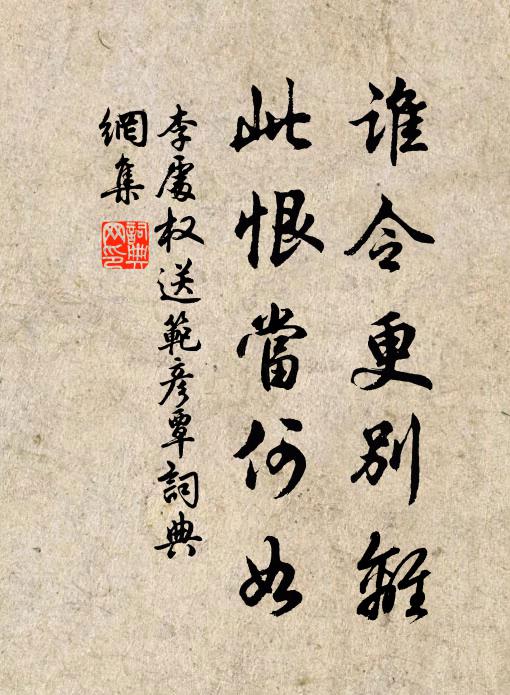 誰令更別離
此恨當何如
李處权送範彥覃詞典
網集
詞典
网印